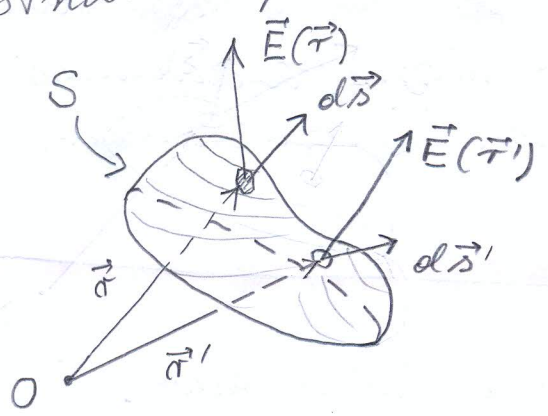 $\vec{E}(\vec{r})$
S
$d\vec{s}$
$\vec{E}(\vec{r}')$
$d\vec{s}'$
$\vec{r}$
$\vec{r}'$
O